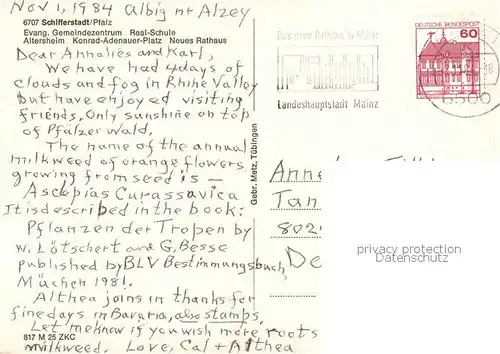 Nov 1, 1984 Albig nr Alzey
6707 Schifferstadt/Pfalz
Evang. Gemeindezentrum Real-Schule
Altersheim Konrad-Adenauer-Platz Neues Rathaus
Dear Annalies and Karl,
We have had 4 days of
clouds and fog in Rhine Valley
but have enjoyed visiting
friends. Only sunshine on top
of Pfälzer Wald.
The name of the annual
milkweed of orange flowers
growing from seed is —
Asclepias Curassavica
It is described in the book:
Pflanzen der Tropen by
W. Lötschert and G. Besse
published by BLV Bestimmungsbuch,
Müchen 1981.
Althea joins in thanks for
fine days in Bavaria, also stamps.
Let me know if you wish more roots
milkweed. Love, Cal + Althea
817 M 25 ZKC
Gebr. Metz, Tübingen
Das neue Rathaus in Mainz
Landeshauptstadt Mainz
DEUTSCHE BUNDESPOST
60
6500
Anne
Tan
802
De
privacy protection
Datenschutz